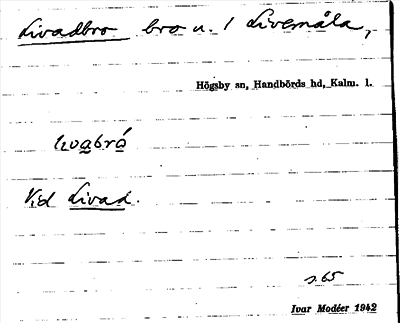 Livadbro bro u. 1 Livemåla,
Högsby sn, Handbörds hd, Kalm. l.
livabró
Vid Livad.
s. 65
Ivar Modéer 1942